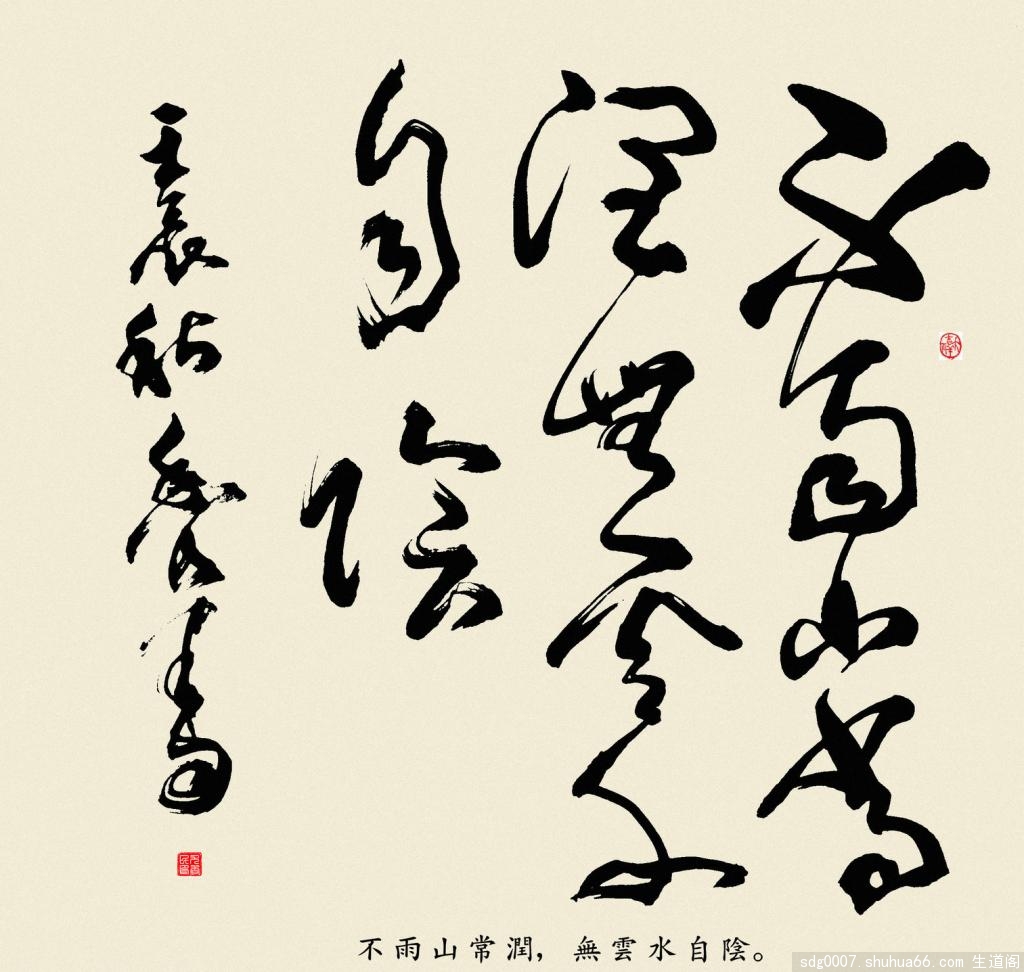 不雨山常
潤無雲水
自陰
壬辰秋
書
不雨山常潤，無雲水自陰。
sdg0007.shuhua66.com 生道阁